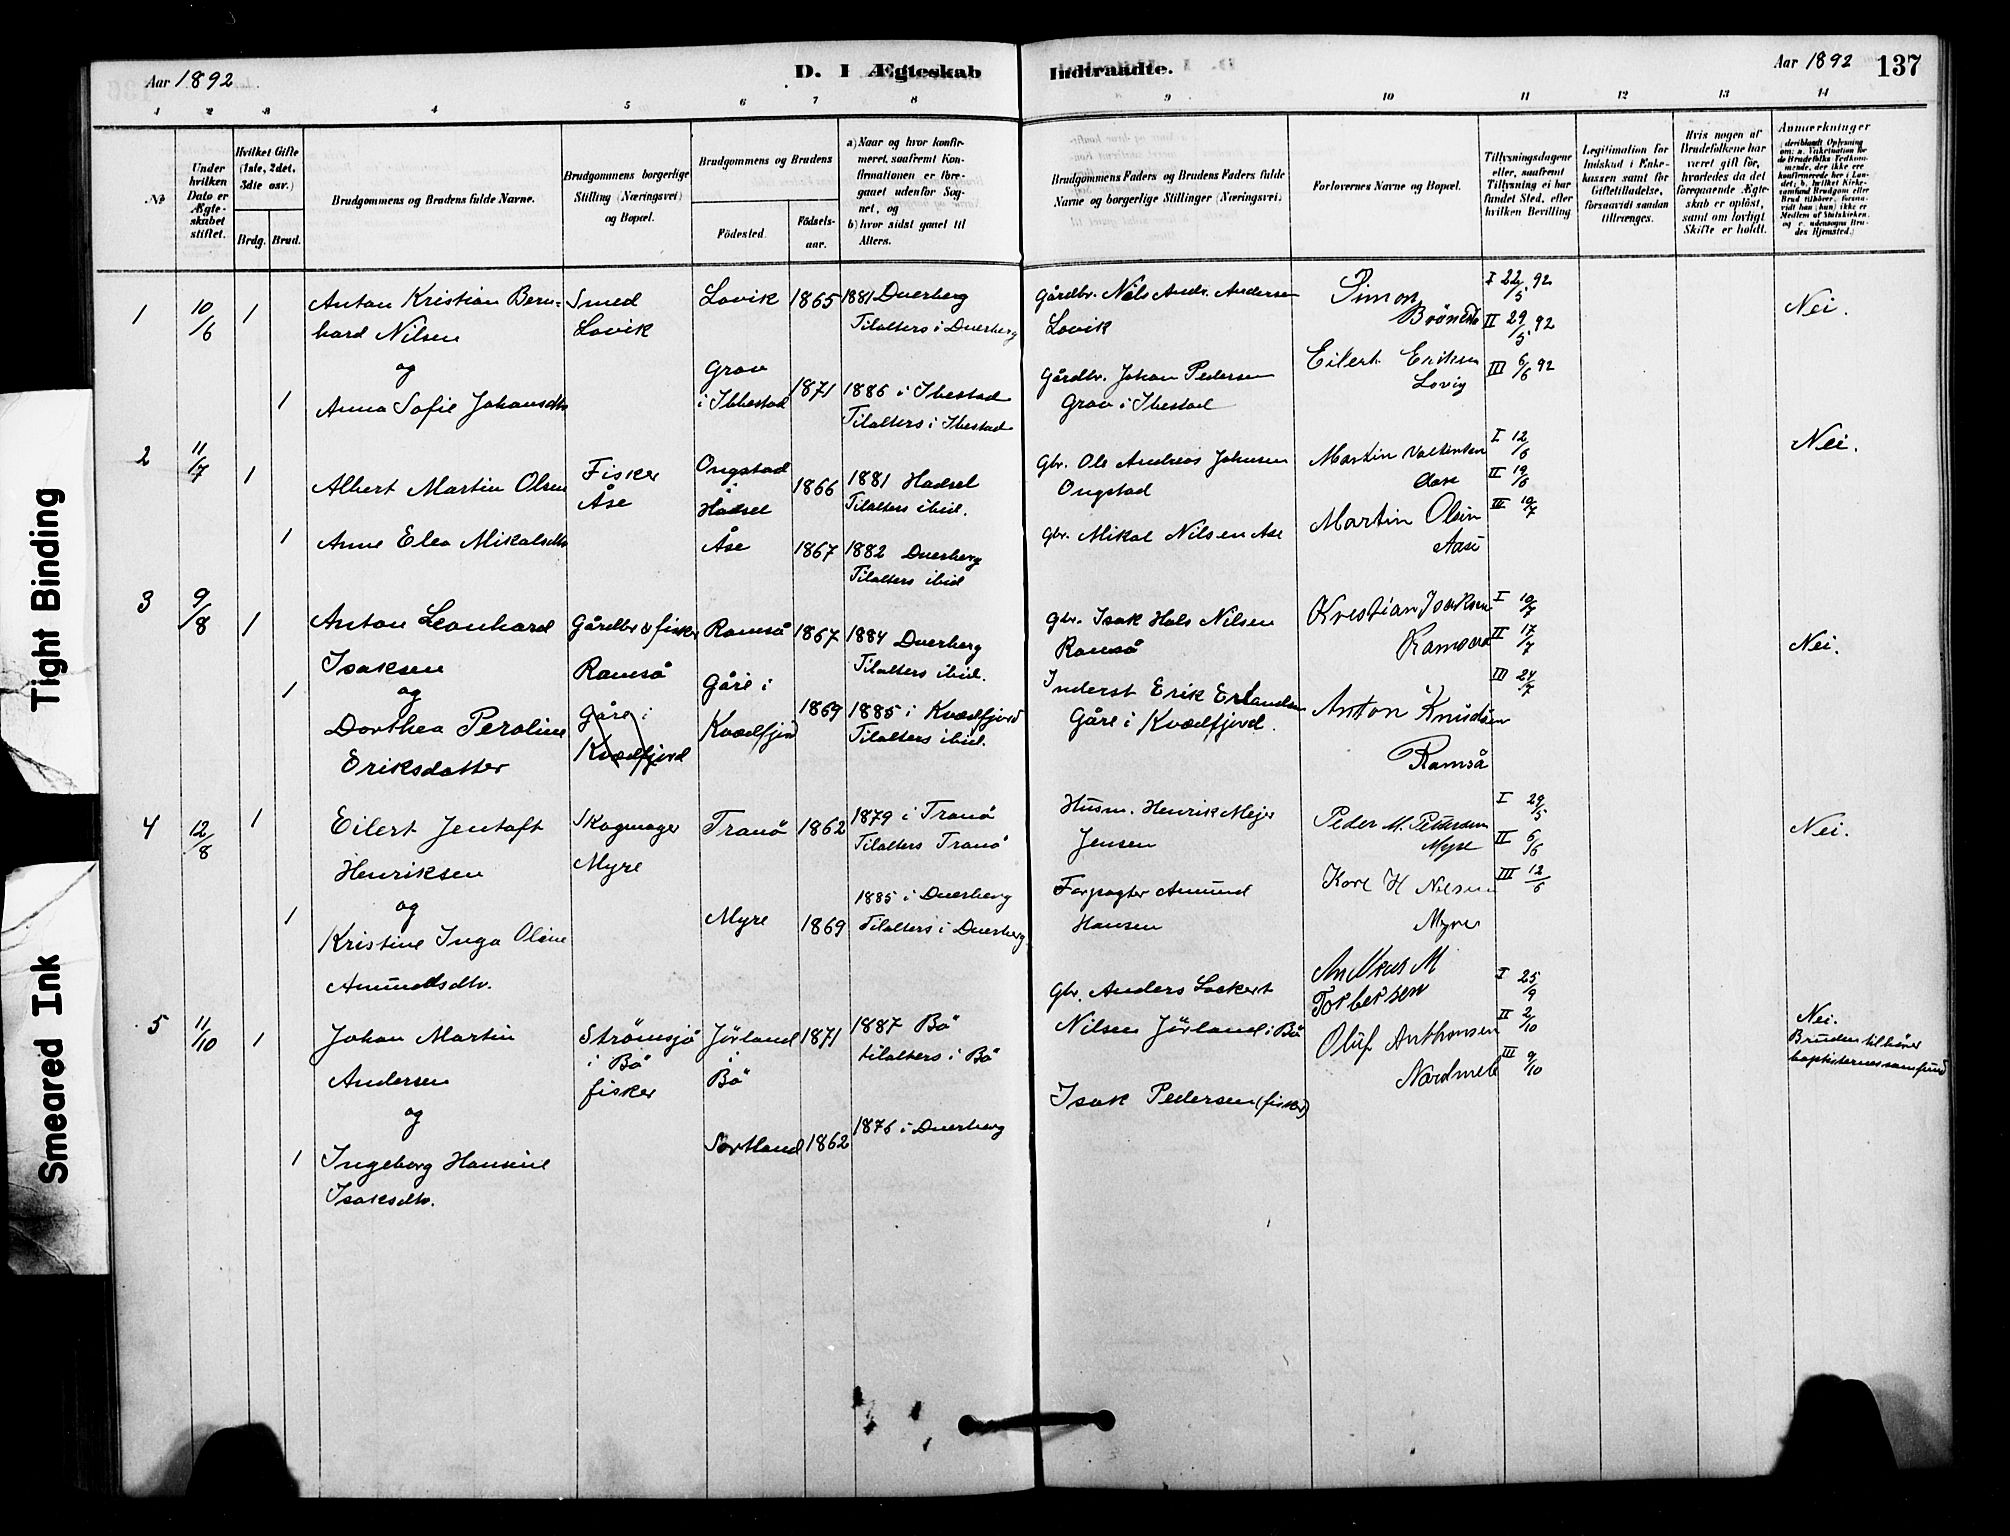 Aar 1892
D. I Ægteskab
Indtraadte.
Aar 1892
137
1 2 3 4 5 6 7 8 9 10 11 12 13 14
No
Under
hvilken
Dato er
Ægte-
skabet
stiftet.
Hvilket Gifte
(1ste, 2det,
3die osv.)
Brdg. Brud.
Brudgommens og Brudens fulde Navne.
Brudgommens borgerlige
Stilling (Næringsvei)
og Bopæl.
Brudgommens og Brudens
Födested.
Födsels-
aar.
a) Naar og hvor konfir-
meret, saafremt Kon-
firmationen er fore-
gaaet udenfor Sog-
net, og
b) hvor sidst gaaet til
Alters.
Brudgommens Faders og Brudens Faders fulde
Navne og borgerlige Stillinger (Næringsvei)
Forlovernes Navne og Bopæl.
Tillysningsdagene
eller, saafremt
Tillysning ei har
fundet Sted, efter
hvilken Bevilling
Legitimation for
Indskud i Enke-
kassen samt for
Giftetilladelse,
forsaavidt saadan
tiltrænges.
Hvis nogen af
Brudefolkene har
været gift för,
hvorledes da det
foregaaende Ægte-
skab er oplöst,
samt om lovligt
Skifte er holdt.
Anmærkninger
1
10/6
1
Anton Kristian Bern=
hard Nilsen
og
1
Anna Sofie Johansdtr
Smed
Lovik
Lovik
1865
1881 Dverberg
Tilalters i Dverberg
Grov
i Ibbestad
1871
1886 i Ibestad
Tilalters i Ibestad
Gårdbr. Nils Andr. Andersen
Lovik
Gårdbr. Johan Pedersen
Grov i Ibestad
Simon
Eilert Eriksen
Lovig
I 22/5 92
II 29/5 92
III 6/6 92
Nei.
2
11/7
1
Albert Martin Olsen
1
Anne Elea Mikalsdtr
Fisker
Åse
Ongstad
i
Hadsel
1866
1881 Hadsel
Tilalters ibid.
Åse
1867
1882 Dverberg
Tilalters ibid
Gbr. Ole Andreas Johnsen
Ongstad
Gbr. Mikal Nilsen Åse
Martin
Aase
Martin Olsen
Aase
I 12/6
II 19/6
III 10/7
Nei.
3
9/8
1
Anton Leonhard
Isaksen
og
1
Dorthea Peroline
Eriksdatter
Gårdbr & fisker
Ramså
Gåre i
Kvædfjord
Ramså
1867
1884 Dverberg
Tilalters ibid.
Gåre i
Kvædfjord
1869
1885 i Kvædfjord
Tilalters ibid.
Gbr. Isak Hals Nilsen
Ramså
Inderst Erik Erlandsen
Gåre i Kvædfjord.
Kristian Isaksen
Ramsaa
Anton Knudsen
Ramså
I 10/7
II 17/7
III 24/7
Nei.
4
12/8
1
Eilert Jentoft
Henriksen
og
1
Kristine Inga Oline
Amundsdtr.
Skomager
Myre
Tranö
1862
1879 i Tranö
Tilalters Tranö
Myre
1869
1885 i Dverberg
Tilalters i Dverberg
Husm. Henrik Mejer
Jensen
Forpagter Amund
Hansen
Peder M. Pettersen
Myre
Karl H Nilsen
Myre
I 29/5
II 6/6
III 12/6
Nei.
5
11/10
1
Johan Martin
Andersen
og
1
Ingeborg Hansine
Isaksdtr.
Strömsjö
i Bö
fisker
Jörland
i
Bö
1871
1887 Bö
tilalters i Bö
Sortland
1862
1876 i Dverberg
Gbr. Anders Lockert
Nilsen Jörland i Bö
Isak Pedersen (fisker)
Andreas M
Torbersen
Oluf Anthonsen
Nordmela
I 25/9
II 2/10
III 9/10
Nei.
Bruden tilhörer
baptisternes samfund
Tight Binding
Smeared Ink